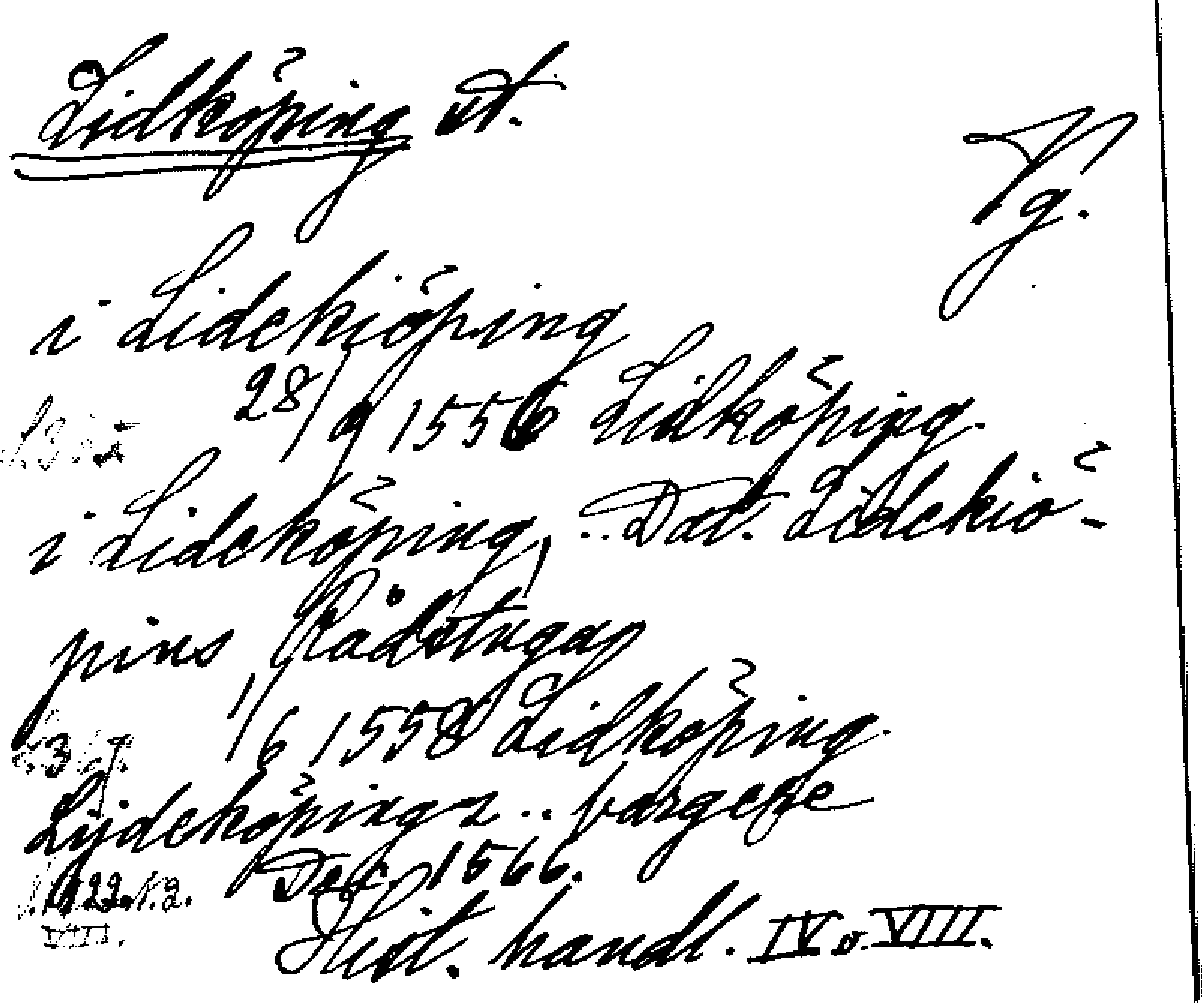 Lidköping st.
Vg.
i Lidekiöping
28/9 1556 Lidköping.
i Lideköping, .. Dat. Lidekiö-
pins Rådstugap
1/6 1558 Lidköping.
Lÿdeköpings .. borgere
Dec. 1566.
VIII.
Hist. handl. IV o. VIII.